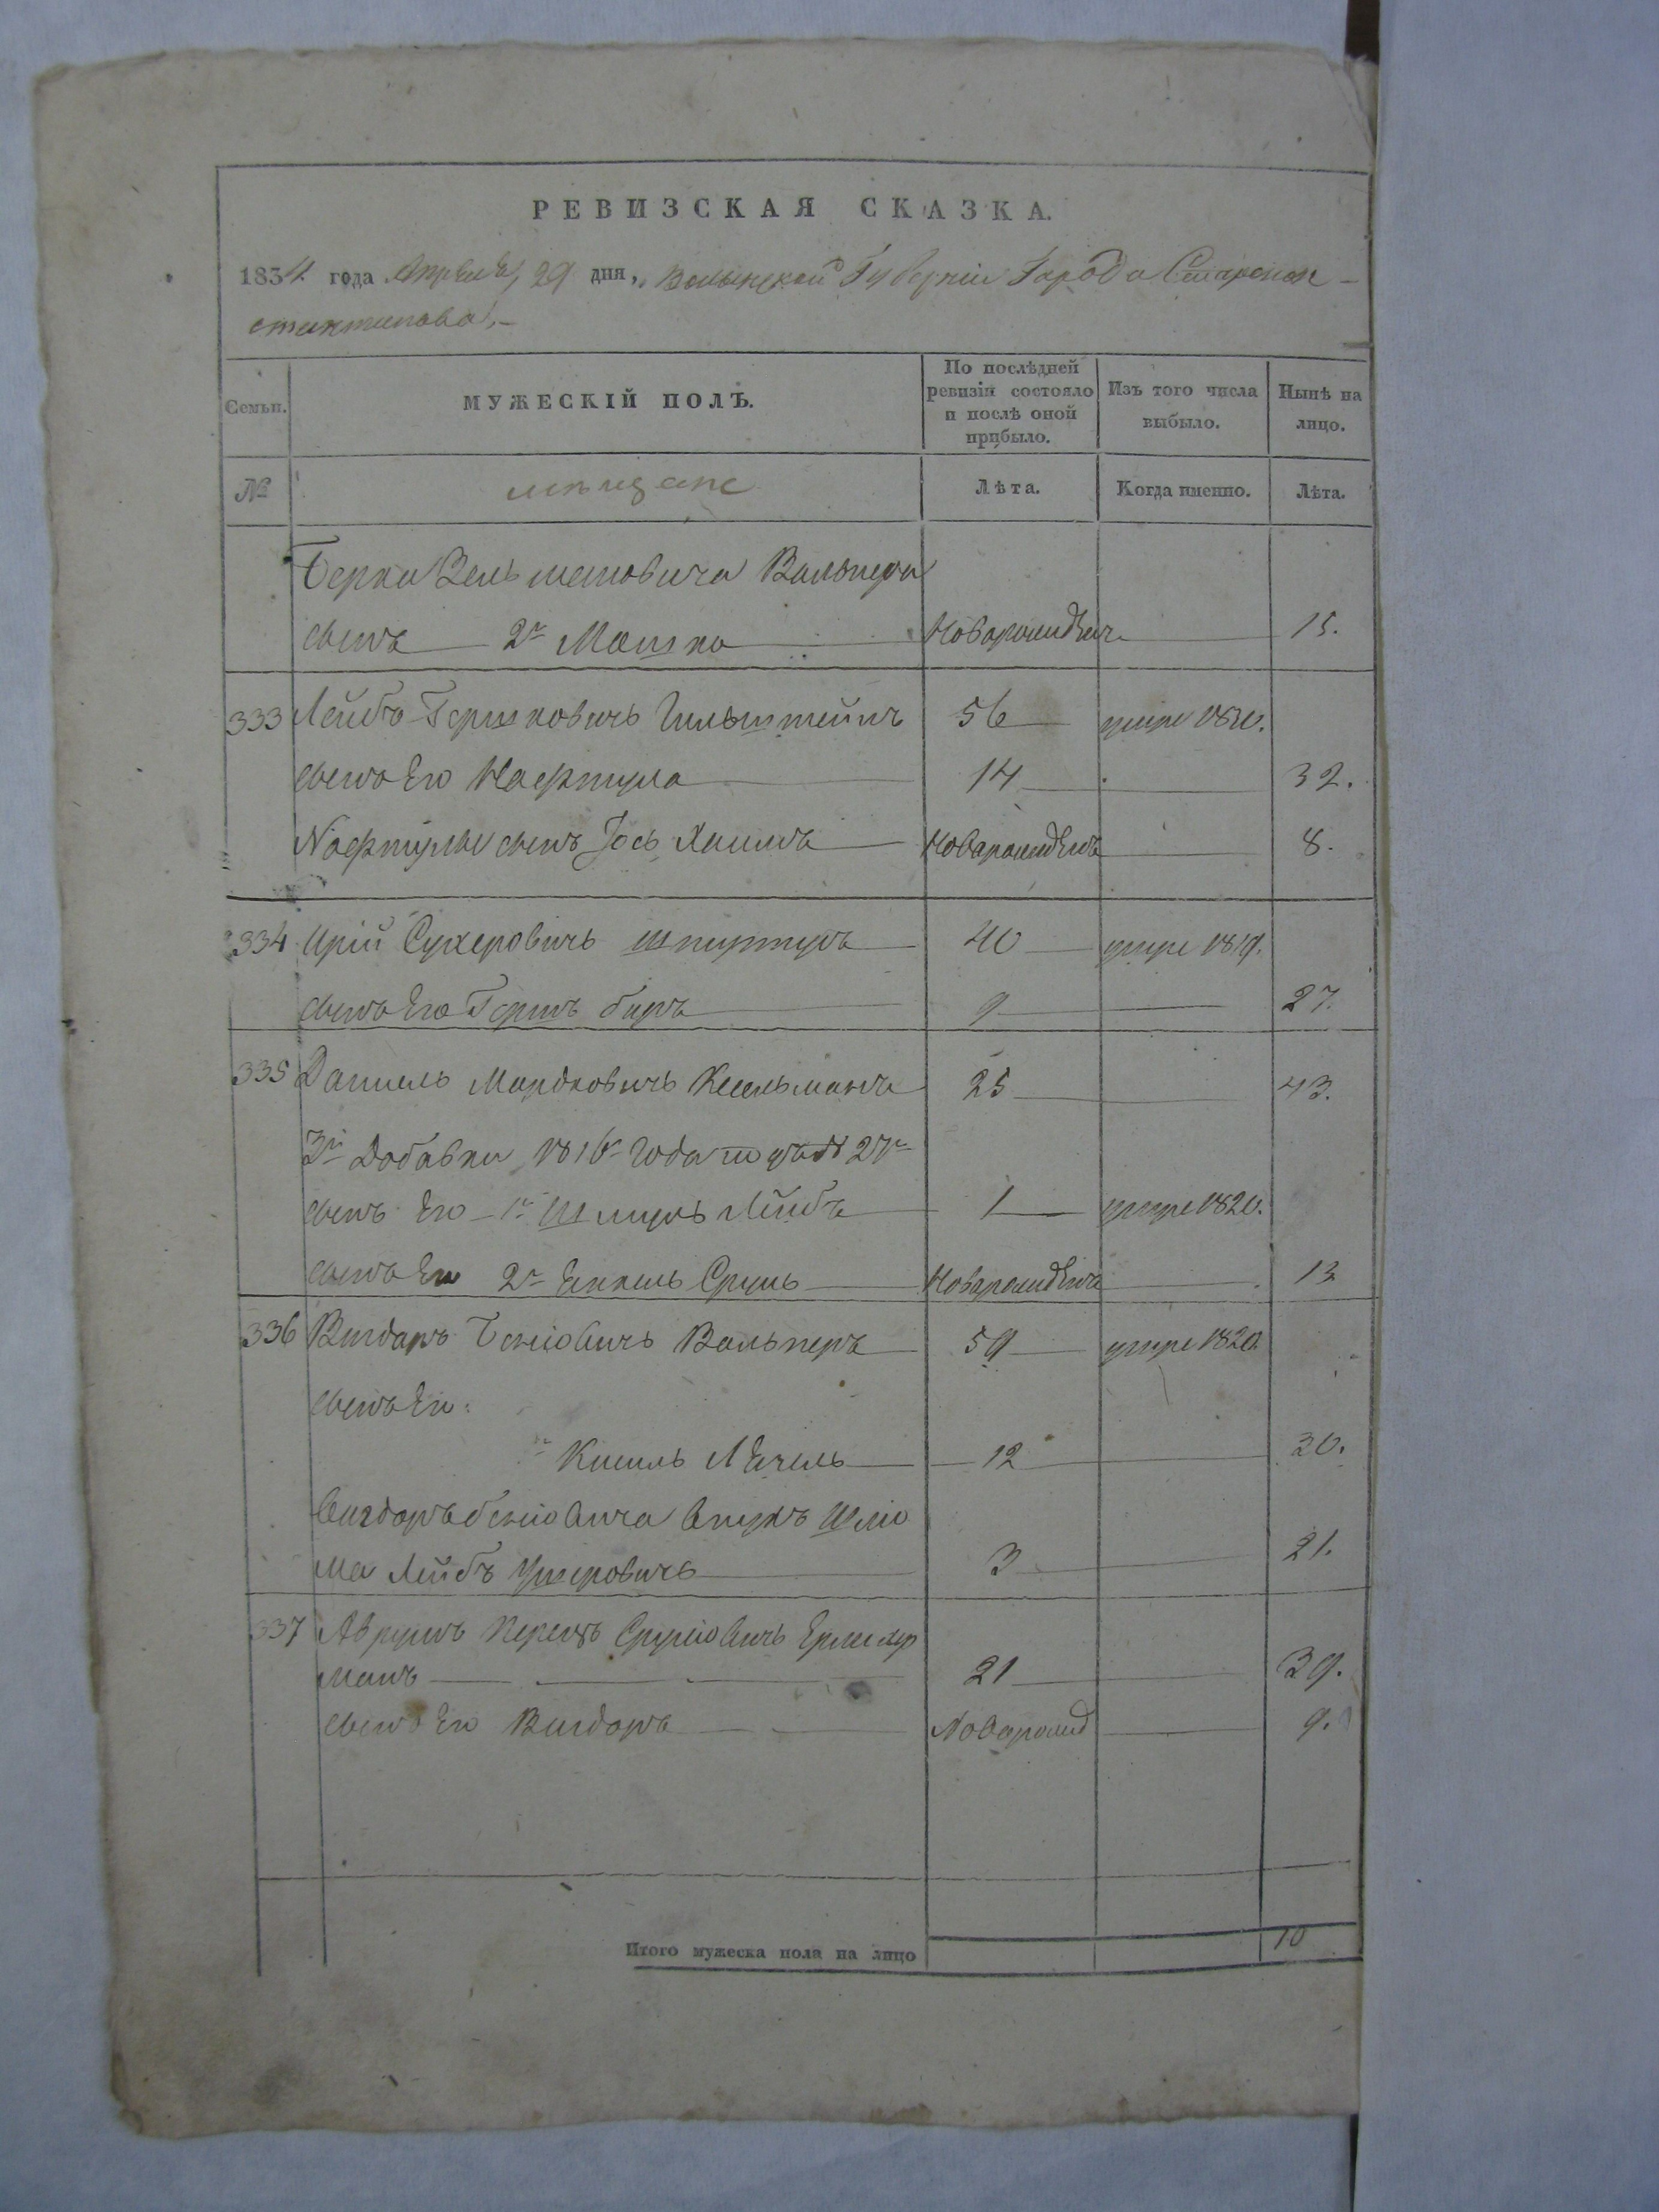 РЕВИЗСКАЯ СКАЗКА.
1834 года Апреля 29 дня, Волынской Губерніи Города Старокон-
стантинова.-
Семьи. МУЖЕСКІЙ ПОЛЪ. По послѣдней ревизіи состояло и послѣ оной прибыло. Изъ того числа выбыло. Нынѣ на лицо.
№ мѣщане Лѣта. Когда именно. Лѣта.
Берка Вельмановича Вальпера
сынъ 2й Мошко Новорожденъ 15.
333 Лейбъ Гершковичъ Гильштейнъ 56 умре 1820.
сынъ Его Нафтула 14 32.
Нафтулы сынъ Іось Хаимъ Новорожденъ 8.
334 Ирій Сухеровичъ 40 умре 1819.
сынъ Его Гершъ беръ 9 27.
335 Даніель Мордковичъ Кесельманъ 25 43.
Зъ Добавки 1816го года подъ № 27м
сынъ Его 1й Шмуль Лейбъ 1 умре 1820.
сынъ Его 2й Енкель Сруль Новорожденъ 13
336 Вигдоръ Беніовичъ Вальперъ 59 умре 1820.
сынъ Его:
Кисиль 12 30.
Вигдоръ беніовича внукъ Шлио
ма Лейбъ Ушеровичъ 3 21.
337 Аврумъ Перецъ Сруліовичъ
манъ 21 39.
сынъ Его Вигдоръ Новорожд 9.
Итого мужеска пола на лицо 10